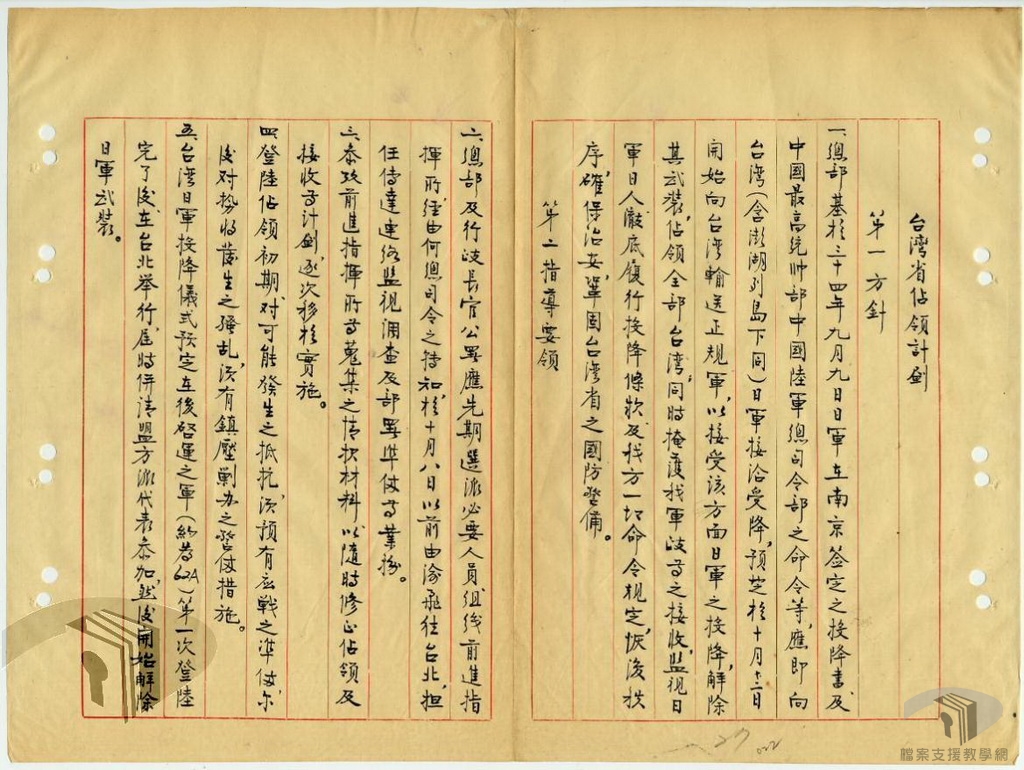 台湾省佔領計劃
第一方針
一、總部基於三十四年九月九日日軍在南京簽定之投降書及
中國最高統帥部中國陸軍總司令部之命令等，應即向
台湾（含澎湖列島下同）日軍接洽受降，預定於十月十二日
開始向台湾輸送正規軍，以接受該方面日軍之投降，解除
其武裝，佔領全部台湾；同時掩護我軍政等之接收，監視日
軍日人澈底履行投降條款及我方一切命令規定，恢復秩
序，確保治安，鞏固台湾省之國防警備。
第二指導要領
二、總部及行政長官公署應先期選派必要人員組織前進指
揮所，經由何總司令之轉知，於十月八日以前由渝飛往台北，担
任傳達連絡監視調查及部署準備等業務。
三、泰攻前進指揮所等蒐集之情报材料，以隨時修正佔領及
接收等計劃，逐次移於實施。
四、登陸佔領初期，对可能發生之抵抗，須預有应戰之準備，尔
後对势將發生之騷乱，須有鎮壓剿办之警備措施。
五、台湾日軍投降儀式預定在後啓運之軍（約為62A）第一次登陸
完了後，在台北举行，屆時併請盟方派代表参加，然後開始解除
日軍武裝。
27
022
檔案支援教學網